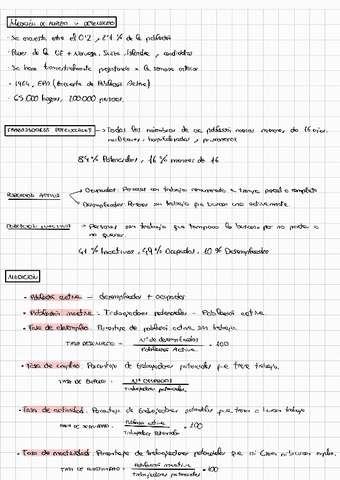 MEDICIÓN DE EMPLEO Y DESEMPLEO
· Se encuesta entre el 0'2 y % de la población
· Países de la UE + Noruega, Suiza, Islandia, candidatos
· Se hace trimestralmente preguntando x la semana anterior
· 1964, EPA (Encuesta de Población Activa)
· 65.000 hogares, 200.000 personas.
TRABAJADORES POTENCIALES → Todos los miembros de la población menos menores de 16 años,
militares, hospitalizados, prisioneros
84% Potenciales, 16% menores de 16
POBLACIÓN ACTIVA
Ocupados: Personas con trabajo remunerado a tiempo parcial o completo
Desempleados: Personas sin trabajo que buscan uno activamente.
POBLACIÓN INACTIVA → Personas sin trabajo que tampoco lo buscan por no poder o
no querer.
41% Inactivos, 49% Ocupados, 10% Desempleados
MEDICIÓN
· Población activa = desempleados + ocupados
· Población inactiva = Trabajadores potenciales - Población activa.
· Tasa de desempleo. Porcentaje de población activa sin trabajo.
TASA DESEMPLEO = Nº de desempleados / Población Activa · 100
· Tasa de empleo. Porcentaje de trabajadores potenciales que tiene trabajo.
TASA DE EMPLEO = Nº OCUPADOS / Trabajadores potenciales
· Tasa de actividad. Porcentaje de trabajadores potenciales que tienen o buscan trabajo
TASA DE ACTIVIDAD = Población activa / Trabajadores Potenciales · 100
· Tasa de inactividad. Porcentaje de trabajadores potenciales que ni tienen ni buscan empleo.
TASA DE INACTIVIDAD = Población inactiva / Trabajadores potenciales · 100